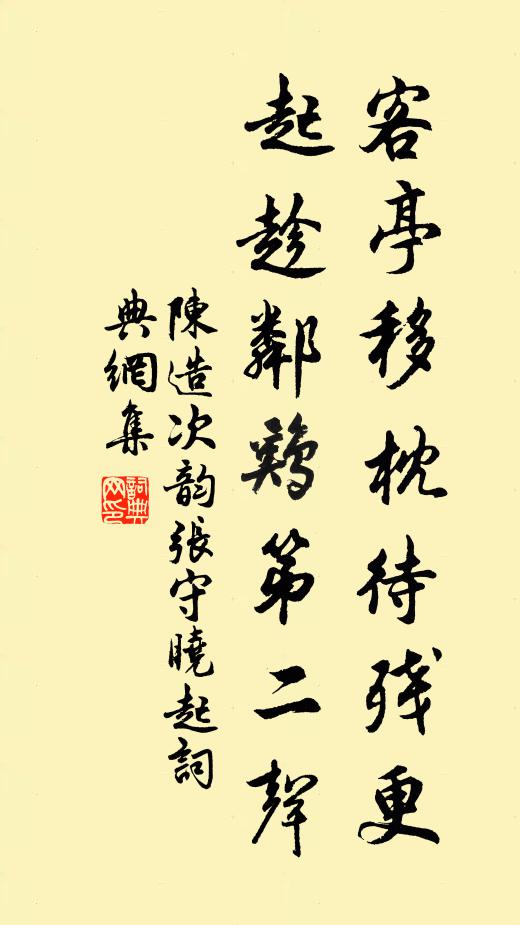 客亭移枕待残更
起趁鄰鷄第二聲
陳造次韵張守曉起詞
典網集
詞典网印